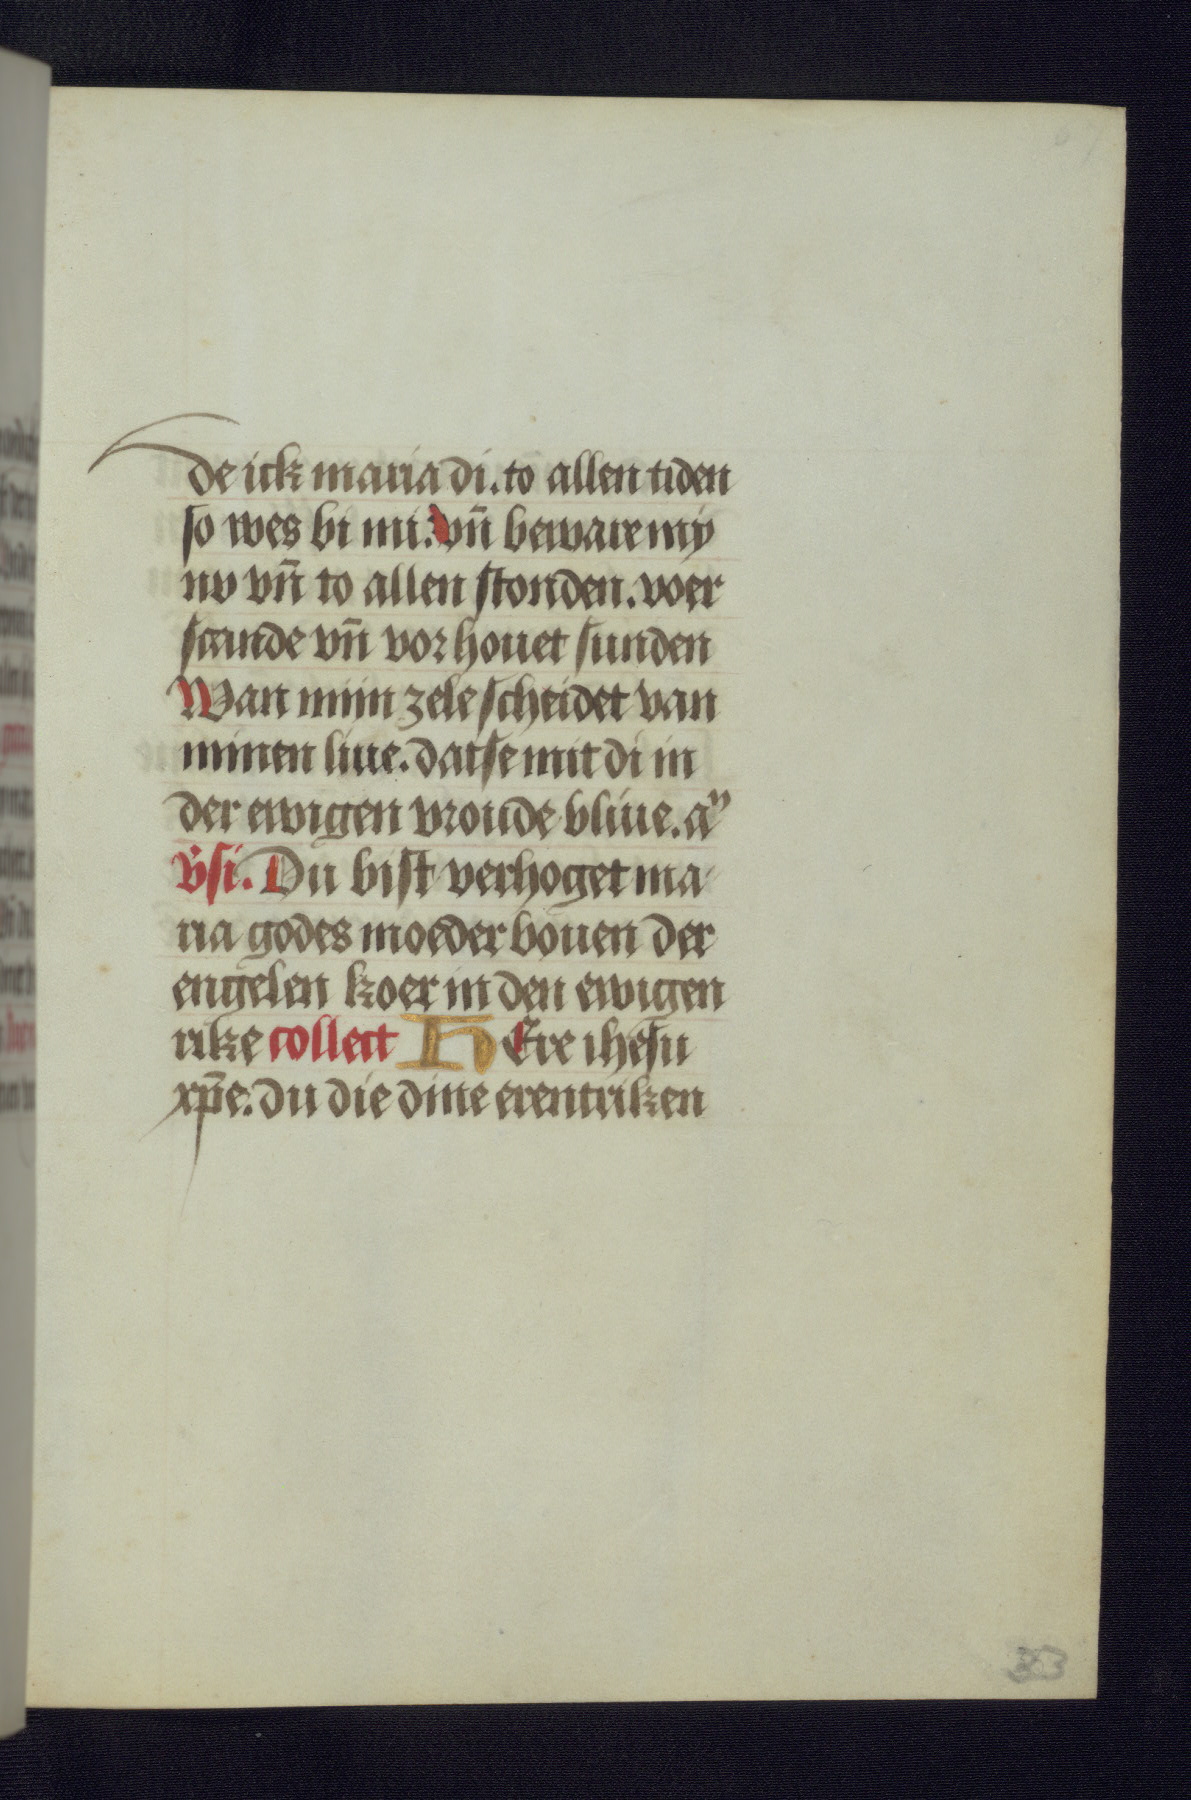 de ick maria di. to allen tiden
so wes bi mi. vn̄ beware my
nv vn̄ to allen stonden. voer
scande vn̄ vor houet sunden
Wan mijn zele scheidet van
minen liue. dat se mit di in
der ewigen vroude bliue. a
v̓si. Du bist verhoget ma
ria godes moeder bouen der
engelen koer in den ewigen
rike collect HEre ihesu
xp̄e. du die dine erentriken
33